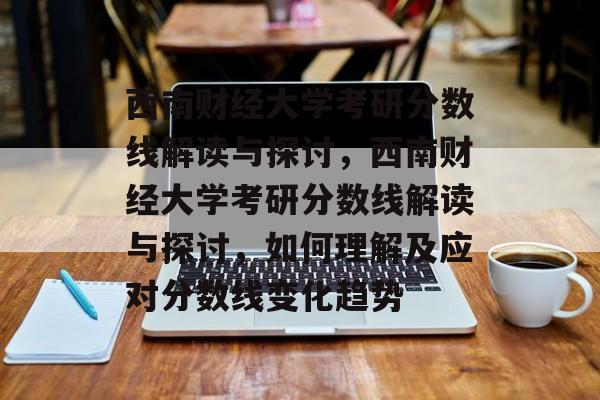 西南财经大学考研分数
线解读与探讨，西南财
经大学考研分数线解读
与探讨，如何理解及应
对分数线变化趋势